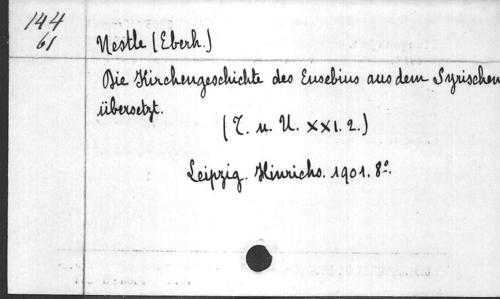 144
61
Nestle (Eberh.)
Die Kirchengeschichte des Eusebius aus dem Syrischen
übersetzt.
(T. u. U. XXI. 2.)
Leipzig. Hinrichs. 1901. 8º.